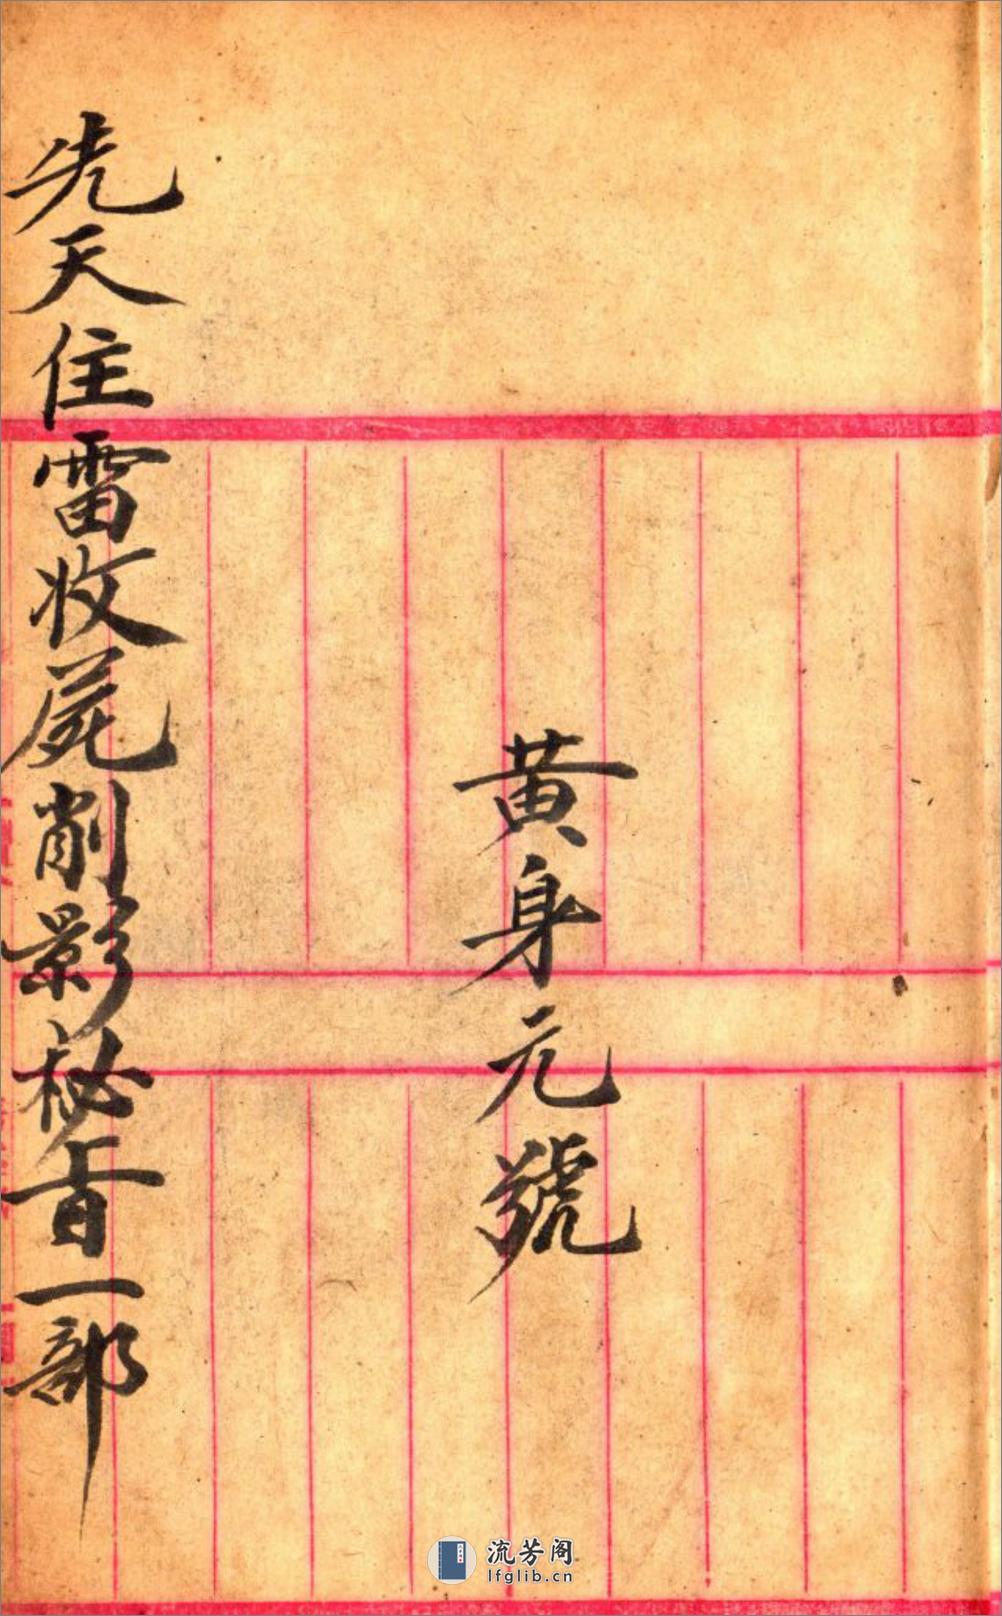 黄身元號
先天住雷收屍削影秘旨一部
流芳阁
lfglib.cn